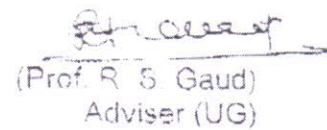 (Prof. R. S. Gaud)
Adviser (UG)